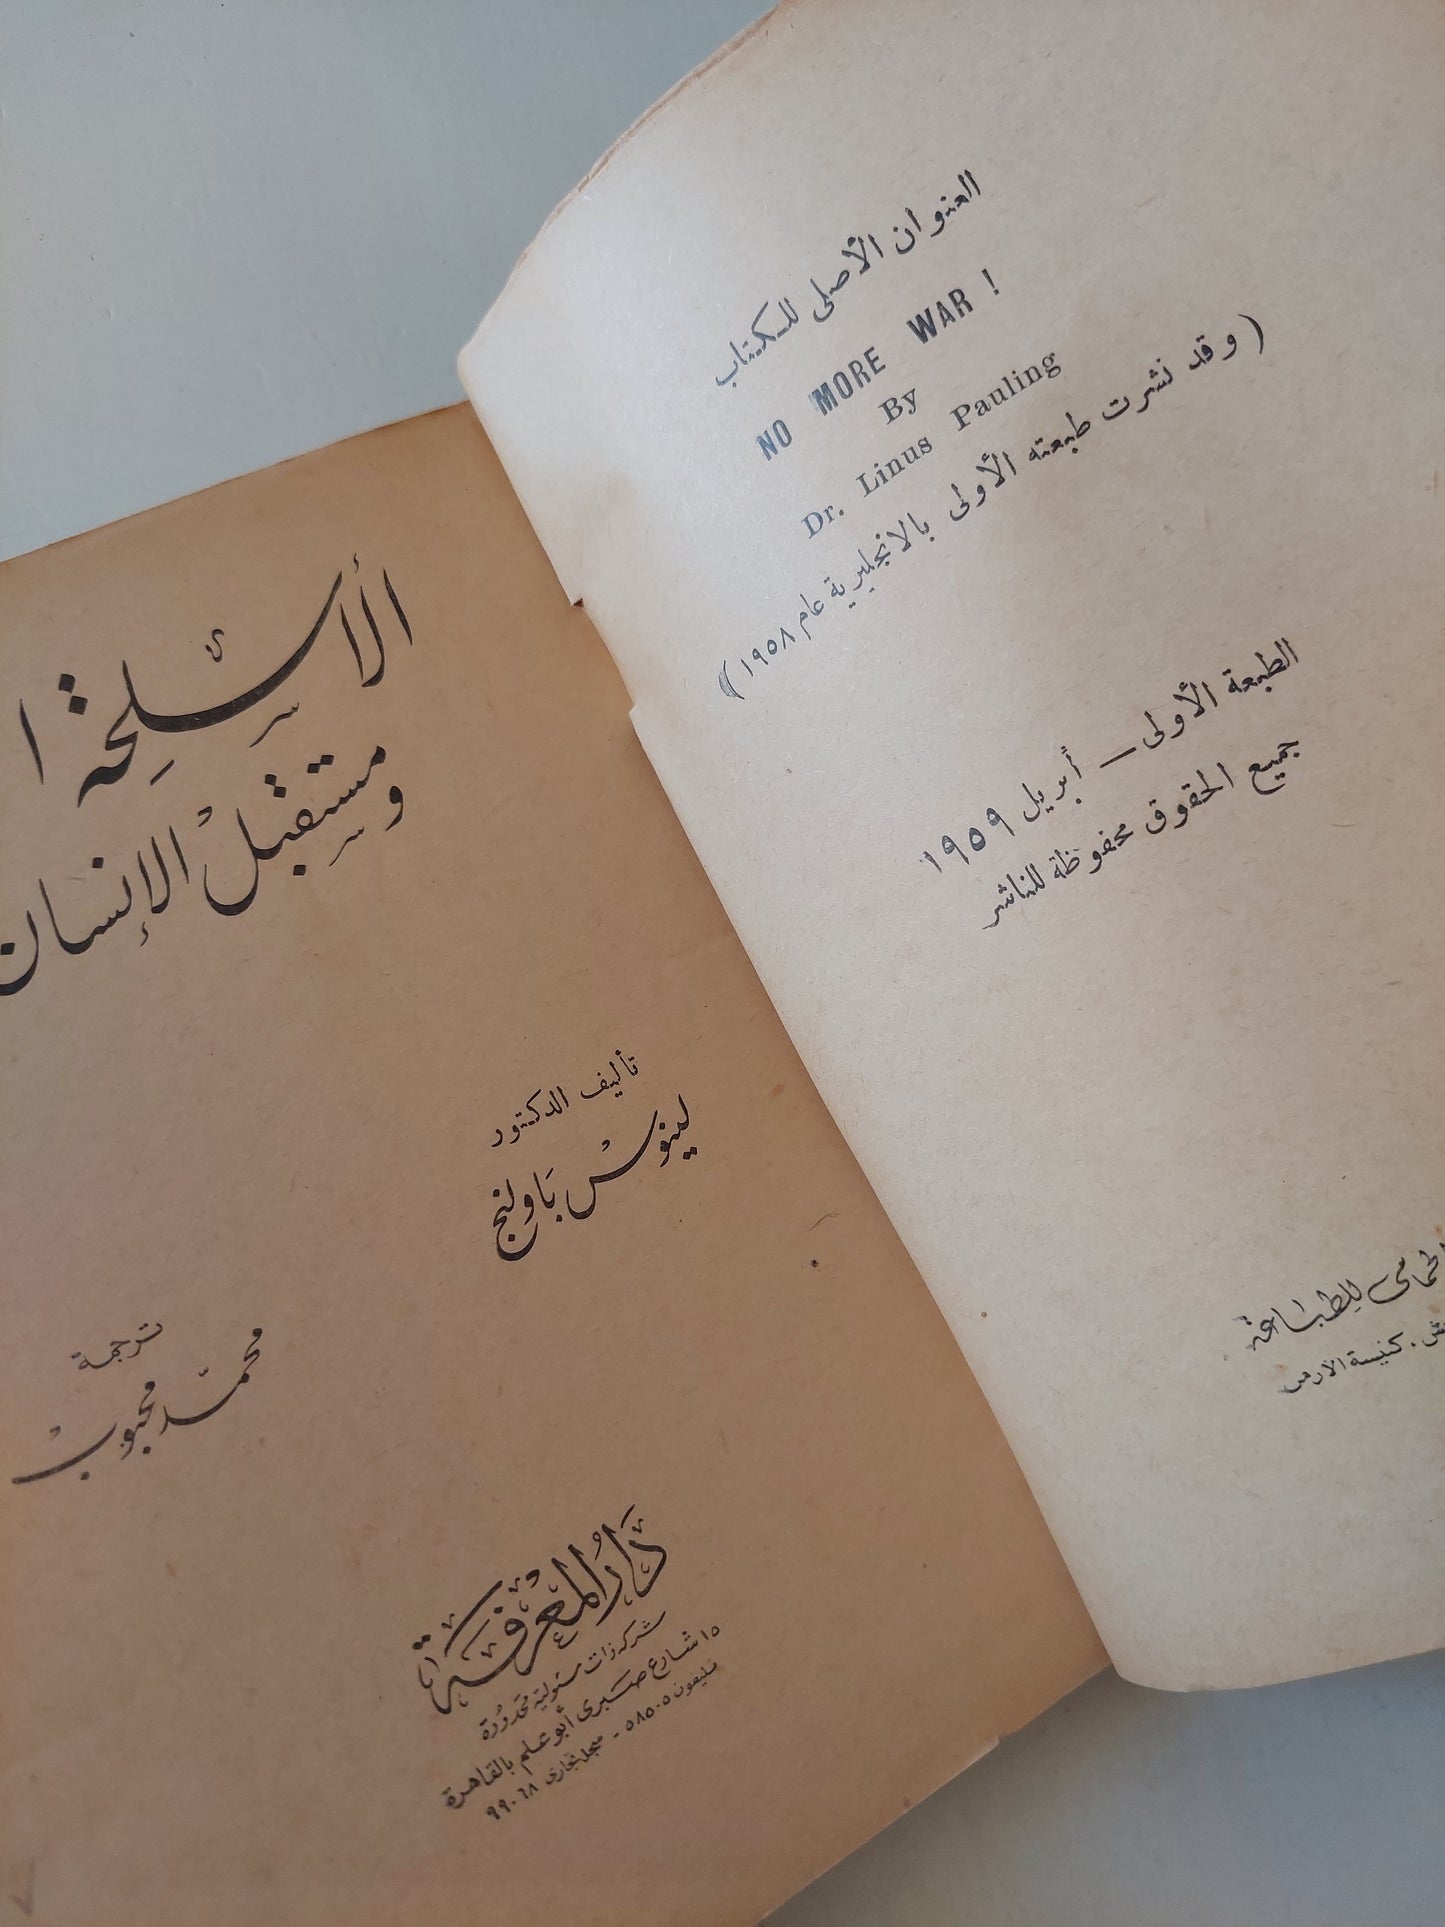 العنوان الأصلى للكتاب
NO MORE WAR !
By
Dr. Linus Pauling
( وقد نشرت طبعته الأولى بالانجليزية عام ١٩٥٨ )
الطبعة الأولى — أبريل ١٩٥٩
جميع الحقوق محفوظة للناشر
للطباعة
كنيسة الأرمن
الأسلحة
ومستقبل الإنسان
تأليف الدكتور
لينوس باولنج
ترجمة
محمد محبوب
دار المعرفة
شركة ذات مسئولية محدودة
١٥ شارع صبرى أبو علم بالقاهرة
تليفون ٥٨٥٠٥ - سجل تجارى ٩٩٠٦٨